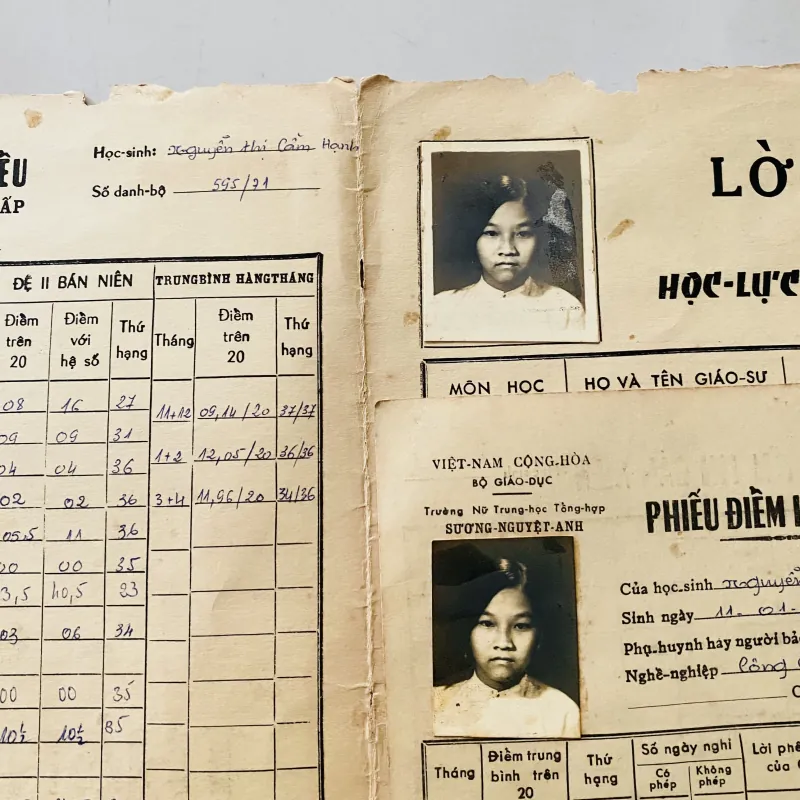 ẤP
Học-sinh: Nguyễn thị Cẩm Hạnh
Số danh-bộ 595/71
ĐỆ II BÁN NIÊN
TRUNG BÌNH HÀNG THÁNG
Điểm trên 20
Điểm với hệ số
Thứ hạng
Tháng
Điểm trên 20
Thứ hạng
08 16 27
11+12 09,14/20 37/37
09 09 31
04 04 36
1+2 12,05/20 36/36
02 02 36
3+4 11,96/20 34/36
05,5 11 36
00 00 35
3,5 40,5 23
03 06 34
00 00 35
10½ 10½ 35
LỜ
HỌC-LỰC
MÔN HỌC
HỌ VÀ TÊN GIÁO-SƯ
VIỆT-NAM CỘNG-HÒA
BỘ GIÁO-DỤC
Trường Nữ Trung-học Tổng-hợp
SƯƠNG-NGUYỆT-ANH
PHIẾU ĐIỂM
Của học-sinh Nguyễn
Sinh ngày 11-01-
Phụ-huynh hay người bảo
Nghề-nghiệp Công
Tháng
Điểm trung bình trên 20
Thứ hạng
Số ngày nghỉ
Có phép
Không phép
Lời phê
của